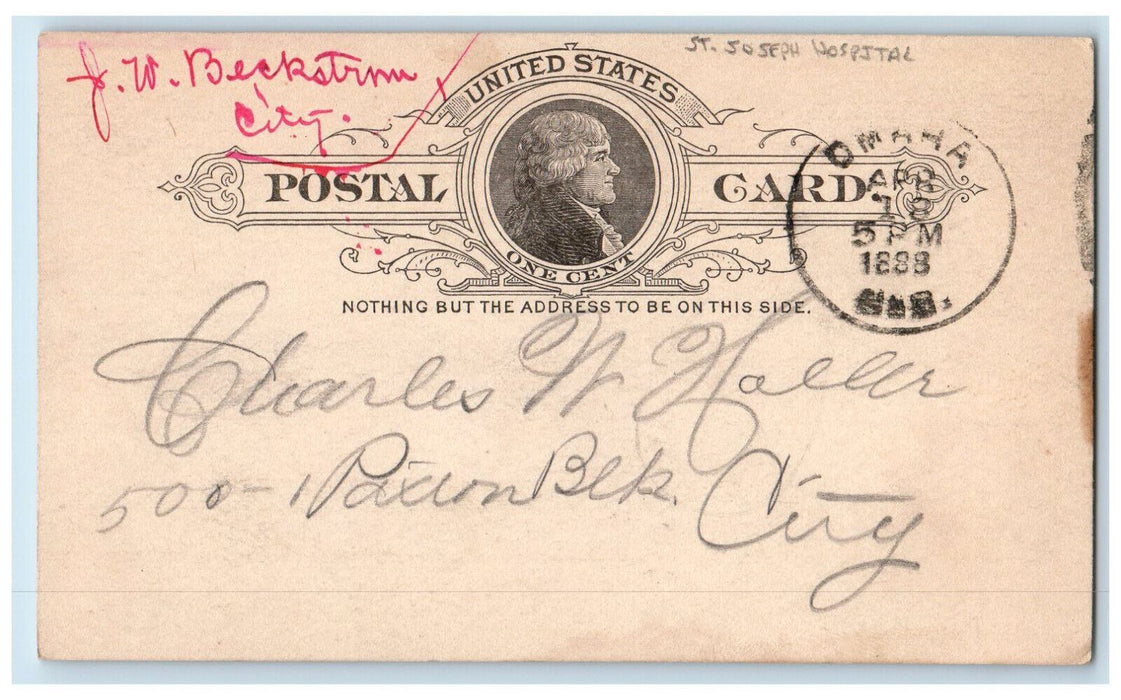 J. W. Beckstrom
City.
ST. JOSEPH HOSPITAL
UNITED STATES
POSTAL CARD.
ONE CENT
NOTHING BUT THE ADDRESS TO BE ON THIS SIDE.
OMAHA
APR
5 PM
1888
Charles W Haller
500 Paxton Blk.
City